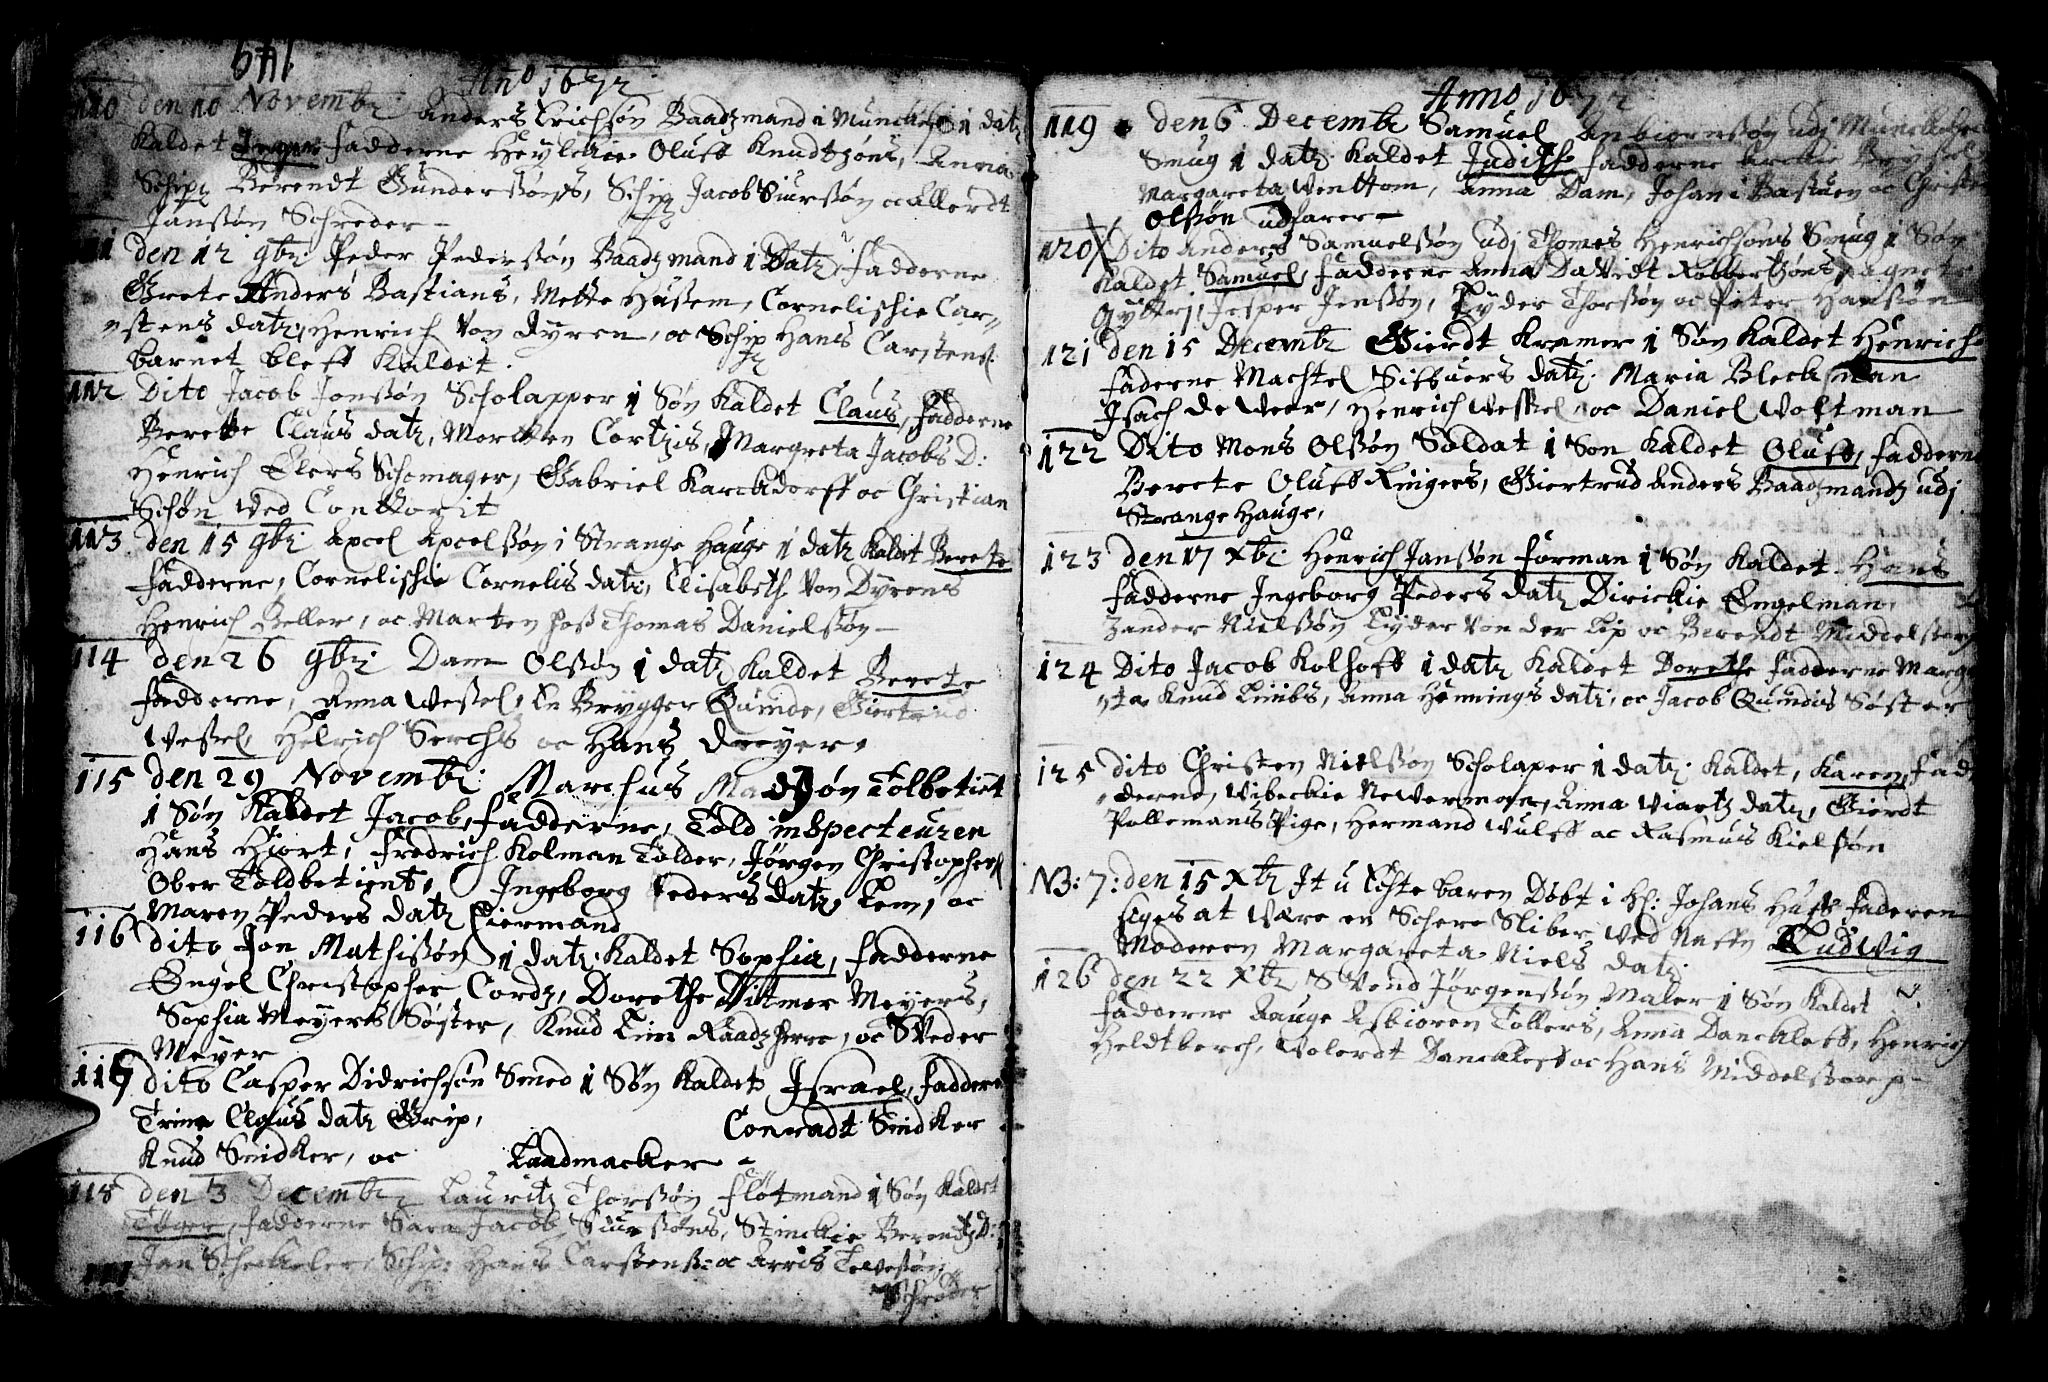 Anno 1672
110 den 10 Novembr: Anders Erichsøn Baadzmand i Munckebo 1 datr
Kaldet fadderne Heylchie Oluff Knudtzøns, Anna
Schipr Berendt Gunderssøns, Schipr Jacob Siurssøn oc Allerdt
Janssøn Schreder
111 den 12 9br: Peder Pederssøn Baadzmand 1 Datr, fadderne
Grete Anders Bastians, Mette Husem, Cornelischie Car-
stens datr, Henrich Von Dyren, oc Schipr Hans Carstens
barnet bleff Kaldet
112 Dito Jacob Jonssøn Scholapper 1 Søn Kaldet Claus, fadderne
Berette Claus datr, Morthen Cortzis, Margreta Jacobs D:
Henrich Elers Schomager, Gabriel Karckdorff oc Christian
Schøn Ved Conttorit
113 den 15 9br: Axcel Axcelssøn i Strange Hauge 1 datr Kaldet Berete
fadderne, Cornelischie Cornelis datr, Elisabeth Von Dyrens
Henrich Beller, oc Marten hoss Thomas Danielssøn
114 den 26 9br: Dam Olssøn 1 datr Kaldet Berete
fadderne, Anna Wessel, En Brygger Quinde, Giertrud
Wessel, Helrich Serchs oc Hans Dreyer.
115 den 29 Novembr: Marchus Madssøn Tolbetient
1 Søn Kaldet Jacob, fadderne, Told inSpecteuren
Hans Hiort, fredrich Kolman Tolder, Jørgen Christophers
Ober Toldbetient, Ingeborg Peders datr, Lem, oc
Maren Peders datr Fiermand
116 dito Jon Mathissøn 1 datr Kaldet Sophia, fadderne
Engel Christopher Cordz, Dorethe Ditmer Meyers,
Sophia Meyers Søster, Knud Lim Raadzherre, oc Sveder
Meyer
117 dito Casper Didrichsøn Smed 1 Søn Kaldet Israel, faddere
Trine Claus datr Grip, Conradt Snidker
Knud Snidker, oc Laadmacker
118 den 3 Decembr Lauritz Thorssøn Fløtmand 1 Søn Kaldet
Tøger, fadderne Sara Jacob Siurssøns, Stinchie Berendtz D:
Jan Scheckeler Schip: Hans Carstenss: oc Arris Tewessøn
Schrøder
Anno 1672
119 den 6 Decembr Samuel Anbiørnssøn udj Munckeboe
Smug 1 datr Kaldet Judithe fadderne
Margareta Venttom, Anna Dam, Johan i Bastuen oc Christen
Olssøn udfarer
120 Dito Anders Samuelssøn udj Thomes Henrichsøns Smug 1 Søn
Kaldet Samuel, fadderne Anna DaVidt Robbertzøns, Agnete
Gyttrj, Jesper Jenssøn, Tyder Thorssøn oc Peter Hanssøn
121 den 15 Decembr Gierdt Kramer 1 Søn Kaldet Henrich
faderne Machtel Siffuers datr. Maria Bleckman
Isach de Weer, Henrich Wessel, oc Daniel Woltman
122 Dito Mons Olssøn Soldat 1 Son Kaldet Oluff, fadderne
Berete Oluff Ringers, Giertrud Anders Baadzmandz udj
Strange Hauge,
123 den 17 Xbr: Henrich Janssøn forman 1 Søn Kaldet Hans
fadderne Ingeborg Peders datr Dirickie Engelman,
Zander Nielssøn Tyder Von der Lip oc Berendt Middelstorp
124 Dito Jacob Kolhoff 1 datr Kaldet Dorethe fadderne Margre
ta Knud Limbs, Anna Hennings datr, oc Jacob Qumdis Søster
125 dito Christen Nielssøn Scholaper 1 datr: Kaldet, Karen, fad
derne, Vibeckie Newermans, Anna Viartz datr, Gierdt
Pollemans Pige, Hermand Wulff oc Rasmus Kielssøn
NB: 7: den 15 Xbr It u Echte baren Døbt i Hl: Johans Huss faderen
siges at Være en Schere Sliber Ved Naffn Ludwig
Moderen Margareta Niels datr.
126 den 22 Xbr SVend Jørgenssøn Maler 1 Søn Kaldet N:
fadderne Aauge Asbioren Tollers, Anna Danckleff, Henrich
Heldtberch, Wolerdt Danckleff oc Hans Middelstorp